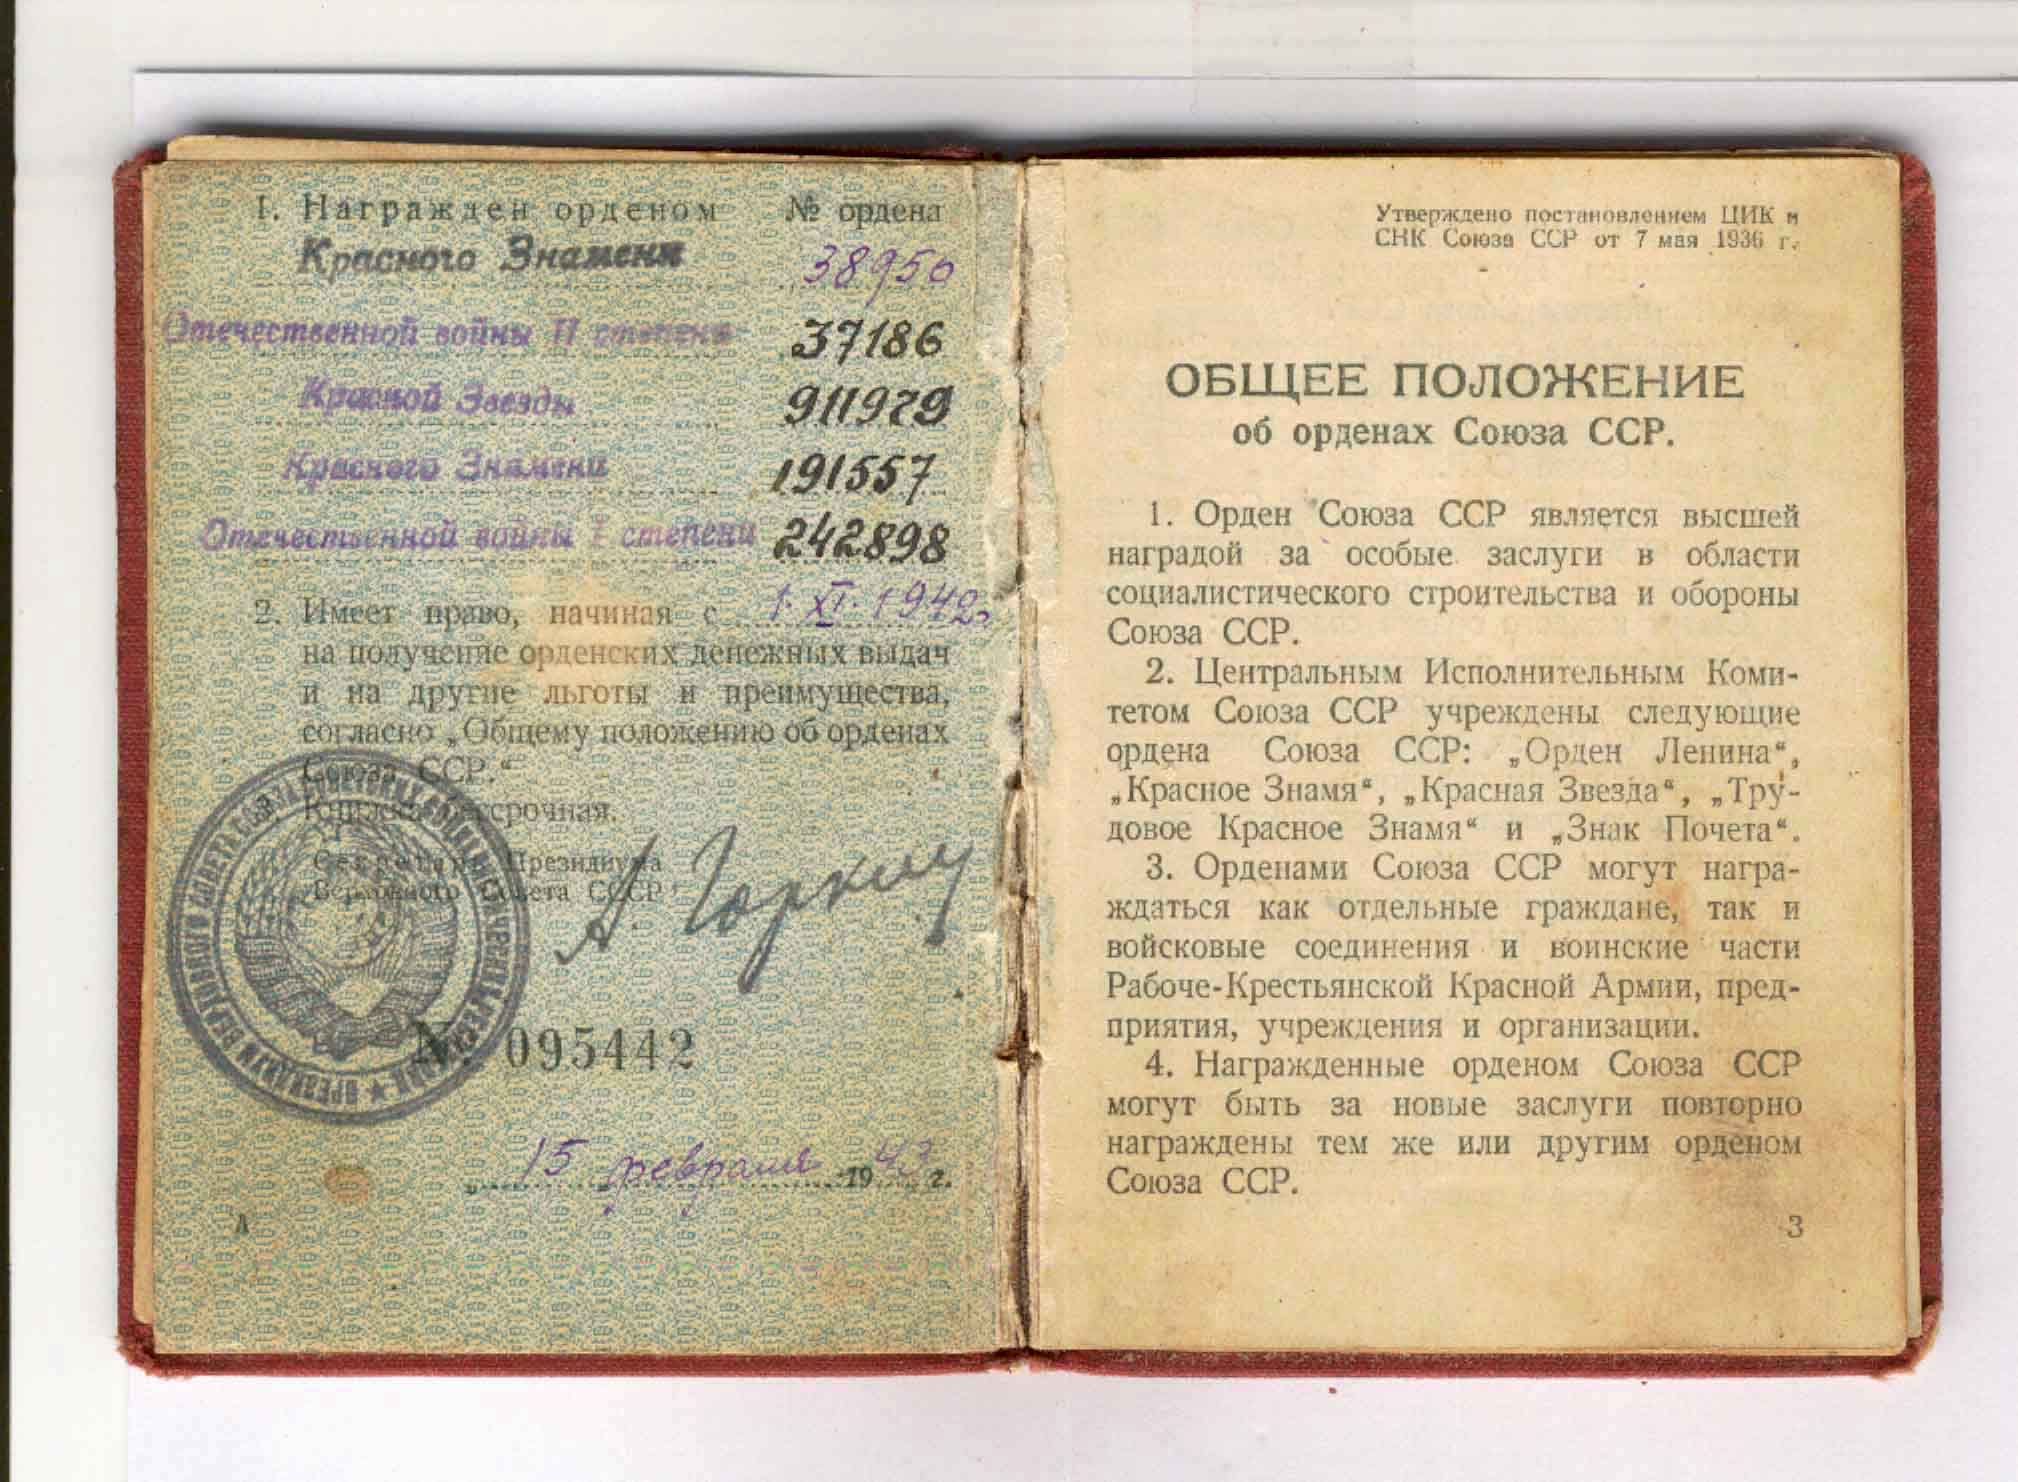 1. Награжден орденом № ордена
Красного Знамени 38950
Отечественной войны II степени 37186
Красной Звезды 911979
Красного Знамени 191557
Отечественной войны I степени 242898
2. Имеет право, начиная с 1·XI·1942
на получение орденских денежных выдач
и на другие льготы и преимущества,
согласно „Общему положению об орденах
Союза ССР.“
Книжка бессрочная.
Секретарь Президиума
Верховного Совета СССР
А. Горкин
№ 095442
„ 15 февраля 1943 г.
А
Утверждено постановлением ЦИК и
СНК Союза ССР от 7 мая 1936 г.
ОБЩЕЕ ПОЛОЖЕНИЕ
об орденах Союза ССР.
1. Орден Союза ССР является высшей
наградой за особые заслуги в области
социалистического строительства и обороны
Союза ССР.
2. Центральным Исполнительным Коми-
тетом Союза ССР учреждены следующие
ордена Союза ССР: „Орден Ленина“,
„Красное Знамя“, „Красная Звезда“, „Тру-
довое Красное Знамя“ и „Знак Почета“.
3. Орденами Союза ССР могут награ-
ждаться как отдельные граждане, так и
войсковые соединения и воинские части
Рабоче-Крестьянской Красной Армии, пред-
приятия, учреждения и организации.
4. Награжденные орденом Союза ССР
могут быть за новые заслуги повторно
награждены тем же или другим орденом
Союза ССР.
3